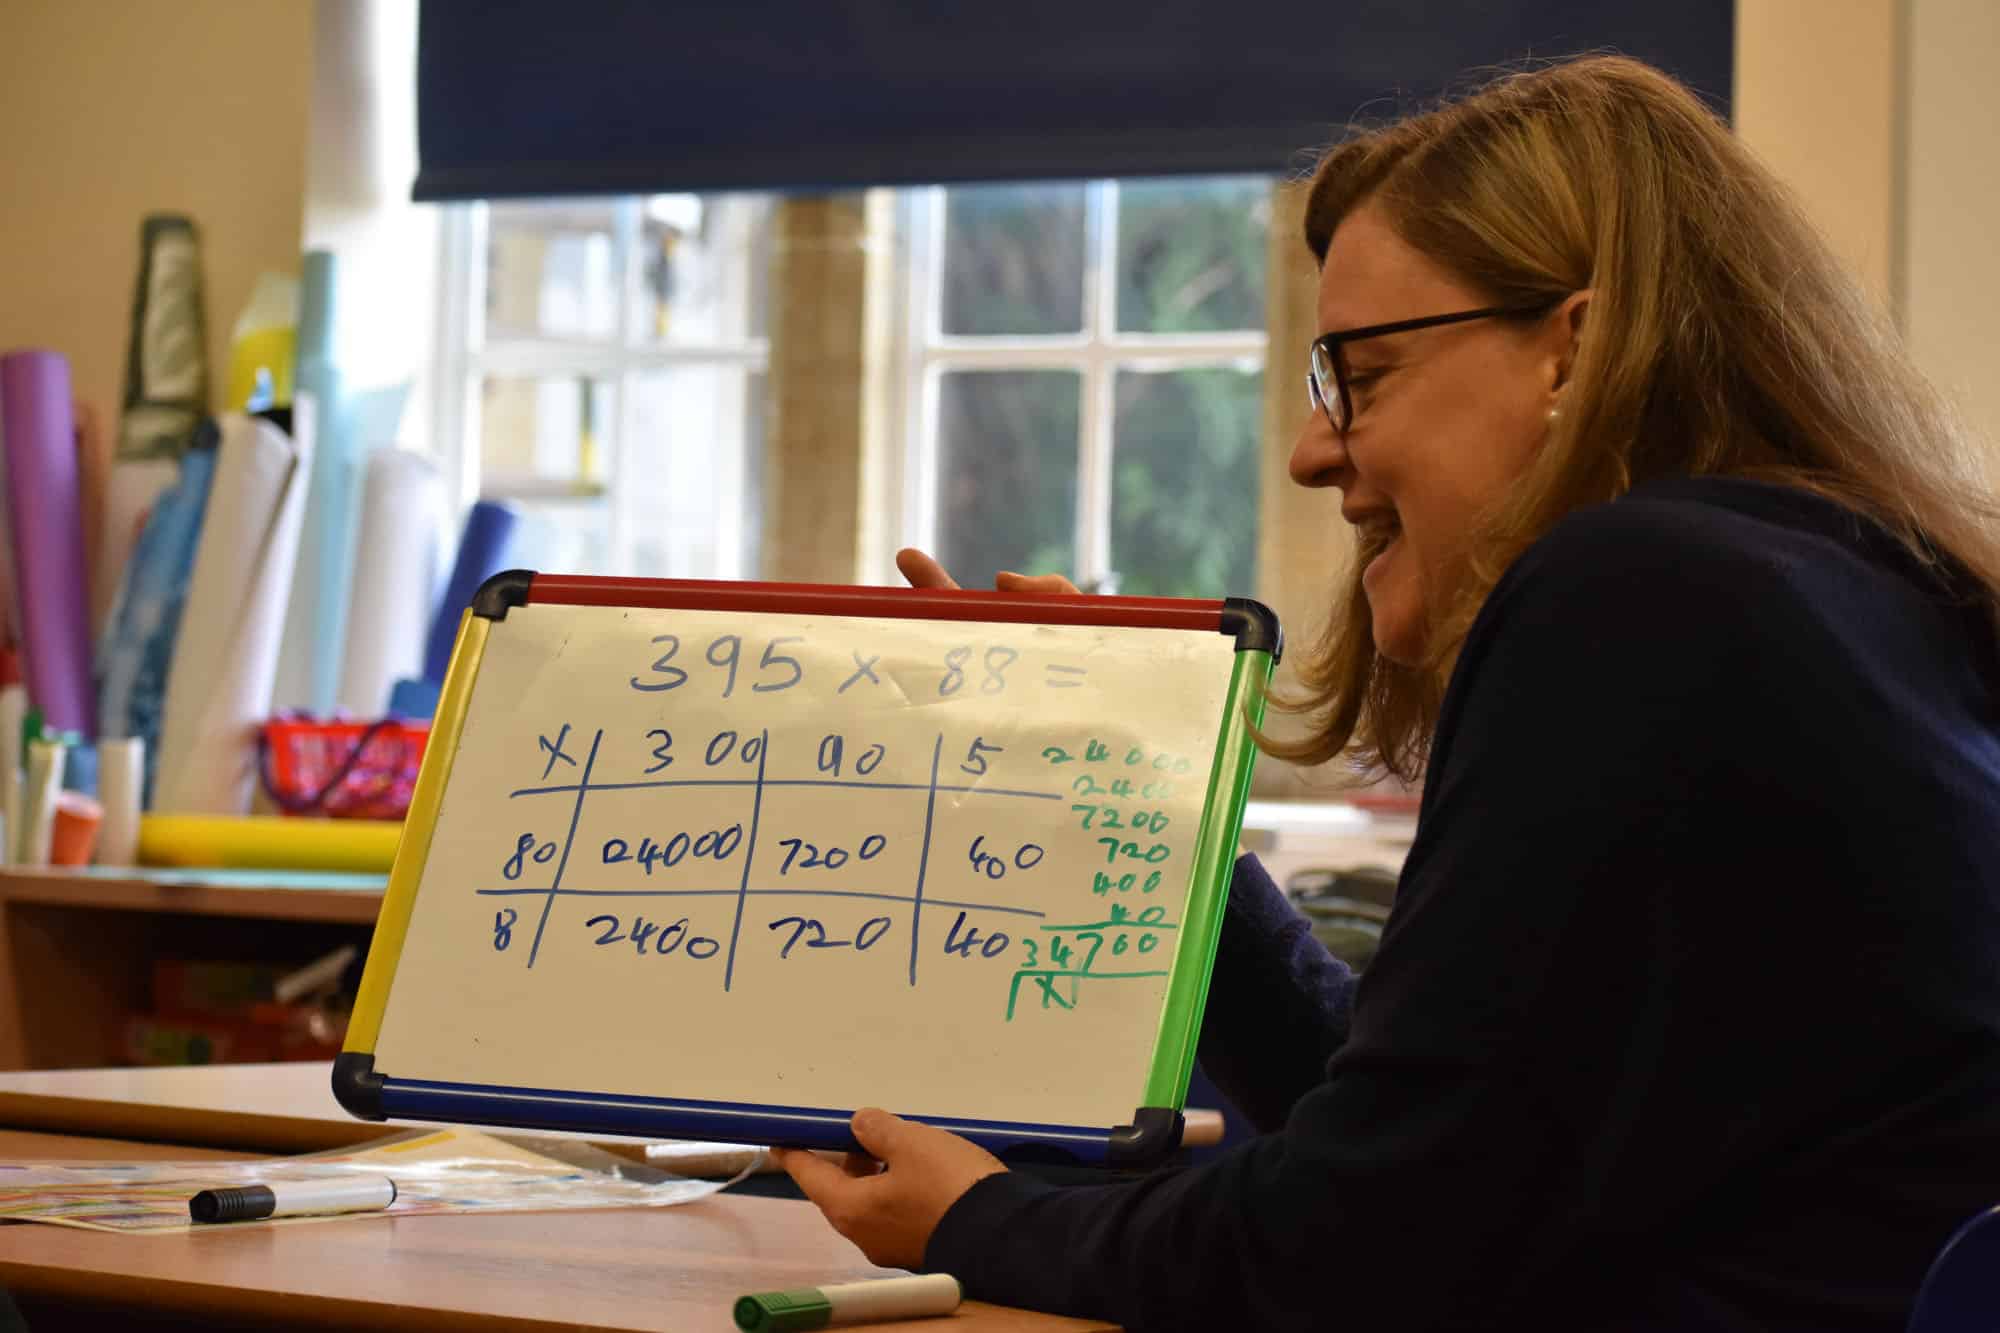 395 x 88 =
X 300 90 5
80 24000 7200 400
8 2400 720 40
24000
2400
7200
720
400
40
34700